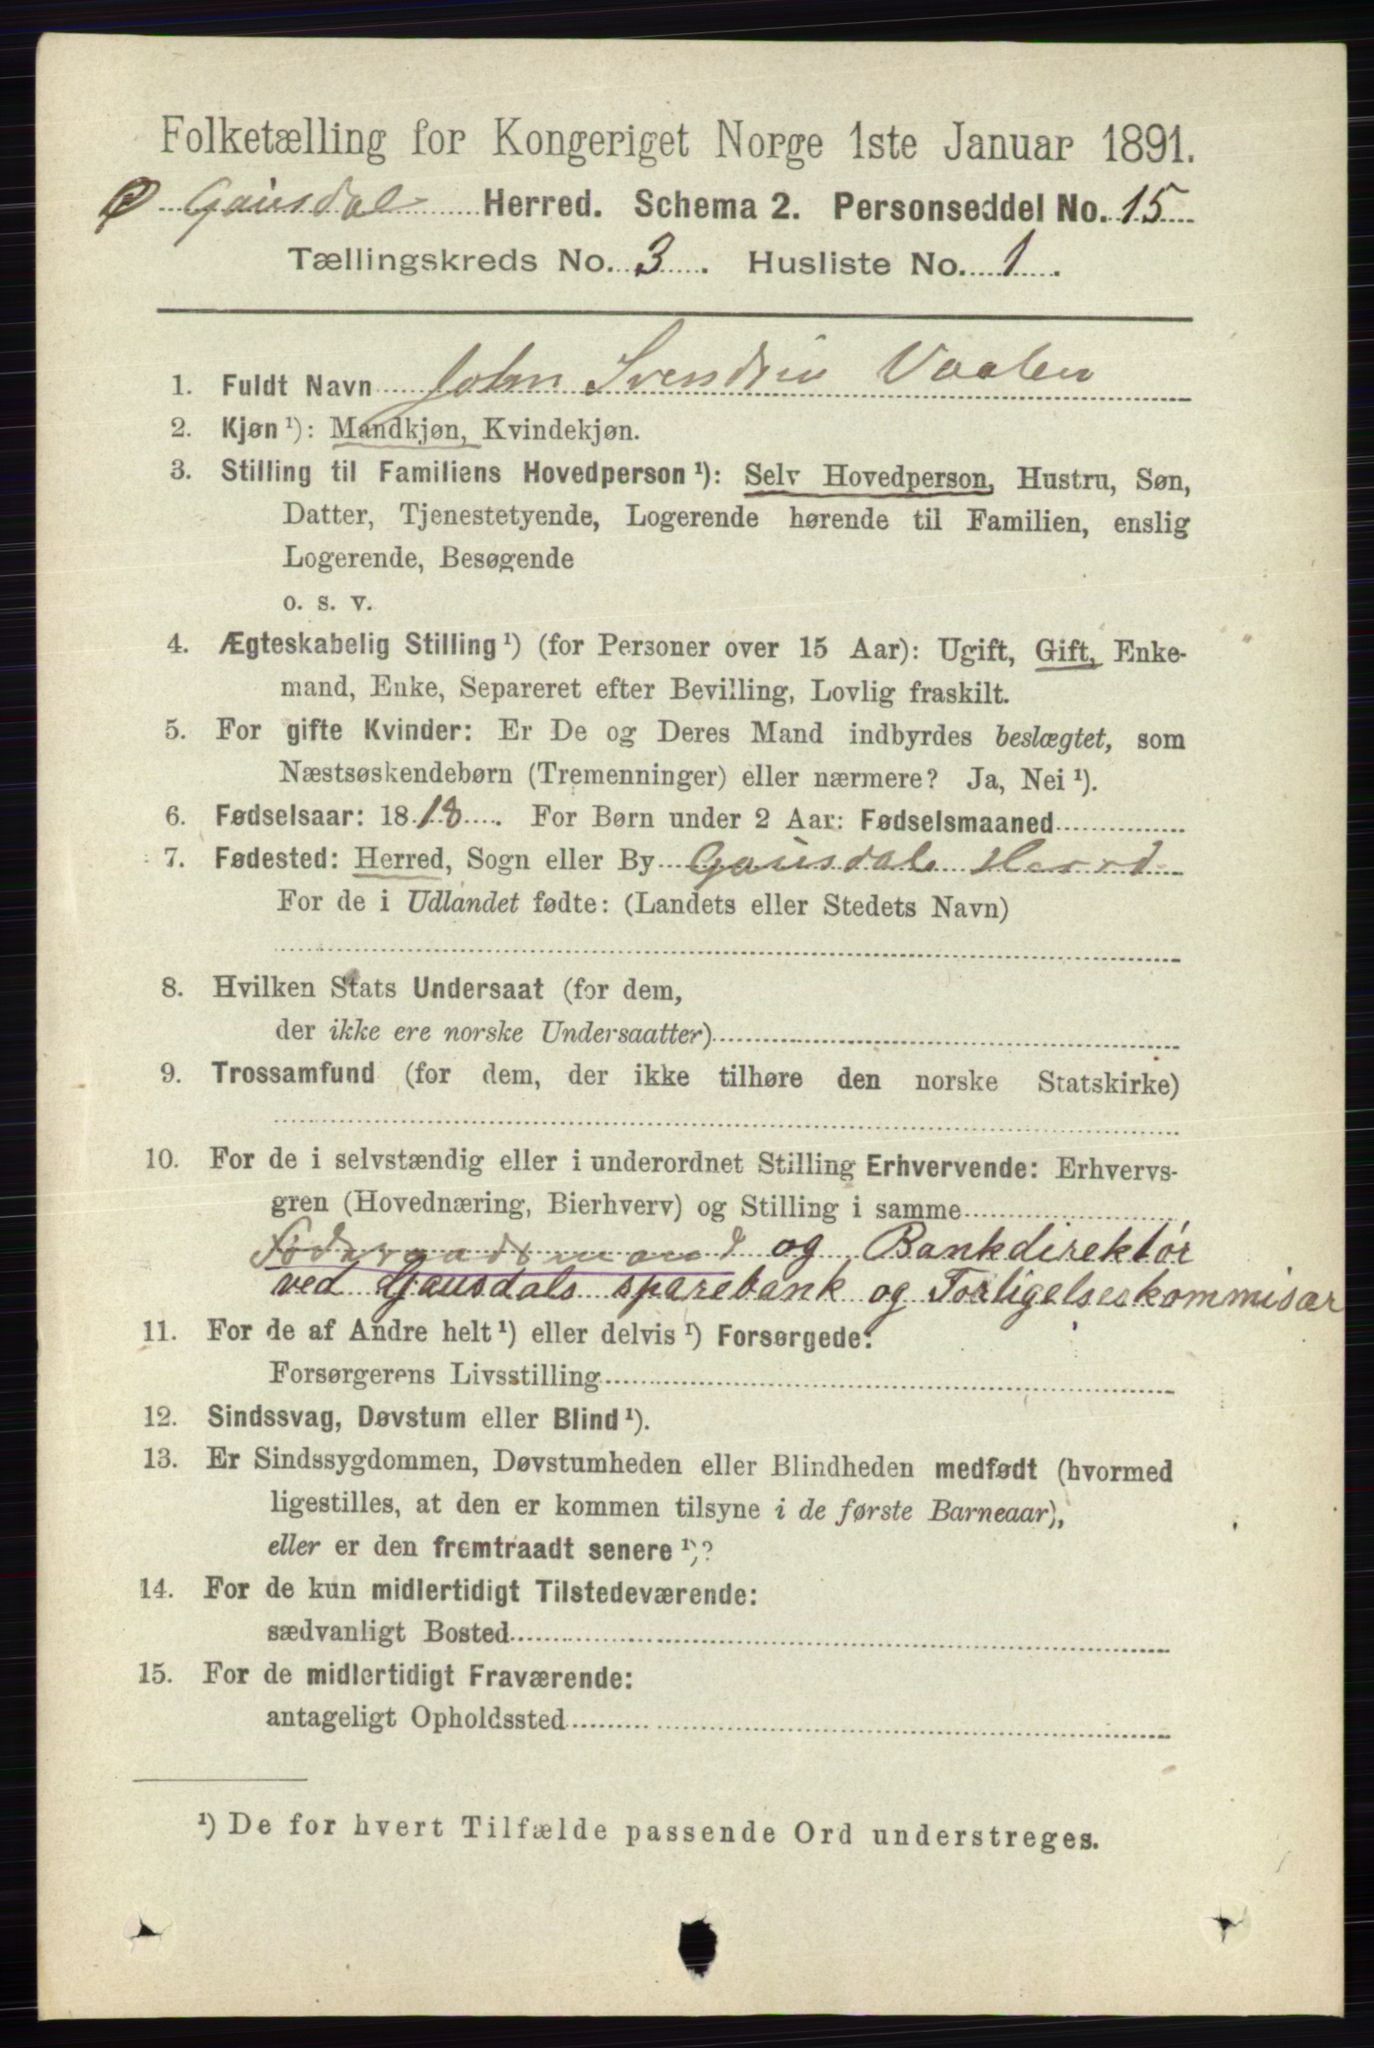 Folketælling for Kongeriget Norge 1ste Januar 1891.
Ø Gausdal Herred. Schema 2. Personseddel No. 15
Tællingskreds No. 3. Husliste No. 1.
1. Fuldt Navn John Svendsen Vaalen
2. Kjøn ¹): Mandkjøn, Kvindekjøn.
3. Stilling til Familiens Hovedperson ¹): Selv Hovedperson, Hustru, Søn,
Datter, Tjenestetyende, Logerende hørende til Familien, enslig
Logerende, Besøgende
o. s. v.
4. Ægteskabelig Stilling ¹) (for Personer over 15 Aar): Ugift, Gift, Enke-
mand, Enke, Separeret efter Bevilling, Lovlig fraskilt.
5. For gifte Kvinder: Er De og Deres Mand indbyrdes beslægtet, som
Næstsøskendebørn (Tremenninger) eller nærmere? Ja, Nei ¹).
6. Fødselsaar: 1818. For Børn under 2 Aar: Fødselsmaaned
7. Fødested: Herred, Sogn eller By Gausdals Herred
For de i Udlandet fødte: (Landets eller Stedets Navn)
8. Hvilken Stats Undersaat (for dem,
der ikke ere norske Undersaatter)
9. Trossamfund (for dem, der ikke tilhøre den norske Statskirke)
10. For de i selvstændig eller i underordnet Stilling Erhvervende: Erhvervs-
gren (Hovednæring, Bierhverv) og Stilling i samme
Føderaadsmand og Bankdirektør
ved Gausdals sparebank og Forligelseskommisær
11. For de af Andre helt ¹) eller delvis ¹) Forsørgede:
Forsørgerens Livsstilling
12. Sindssvag, Døvstum eller Blind ¹).
13. Er Sindssygdommen, Døvstumheden eller Blindheden medfødt (hvormed
ligestilles, at den er kommen tilsyne i de første Barneaar),
eller er den fremtraadt senere ¹)?
14. For de kun midlertidigt Tilstedeværende:
sædvanligt Bosted
15. For de midlertidigt Fraværende:
antageligt Opholdssted
¹) De for hvert Tilfælde passende Ord understreges.